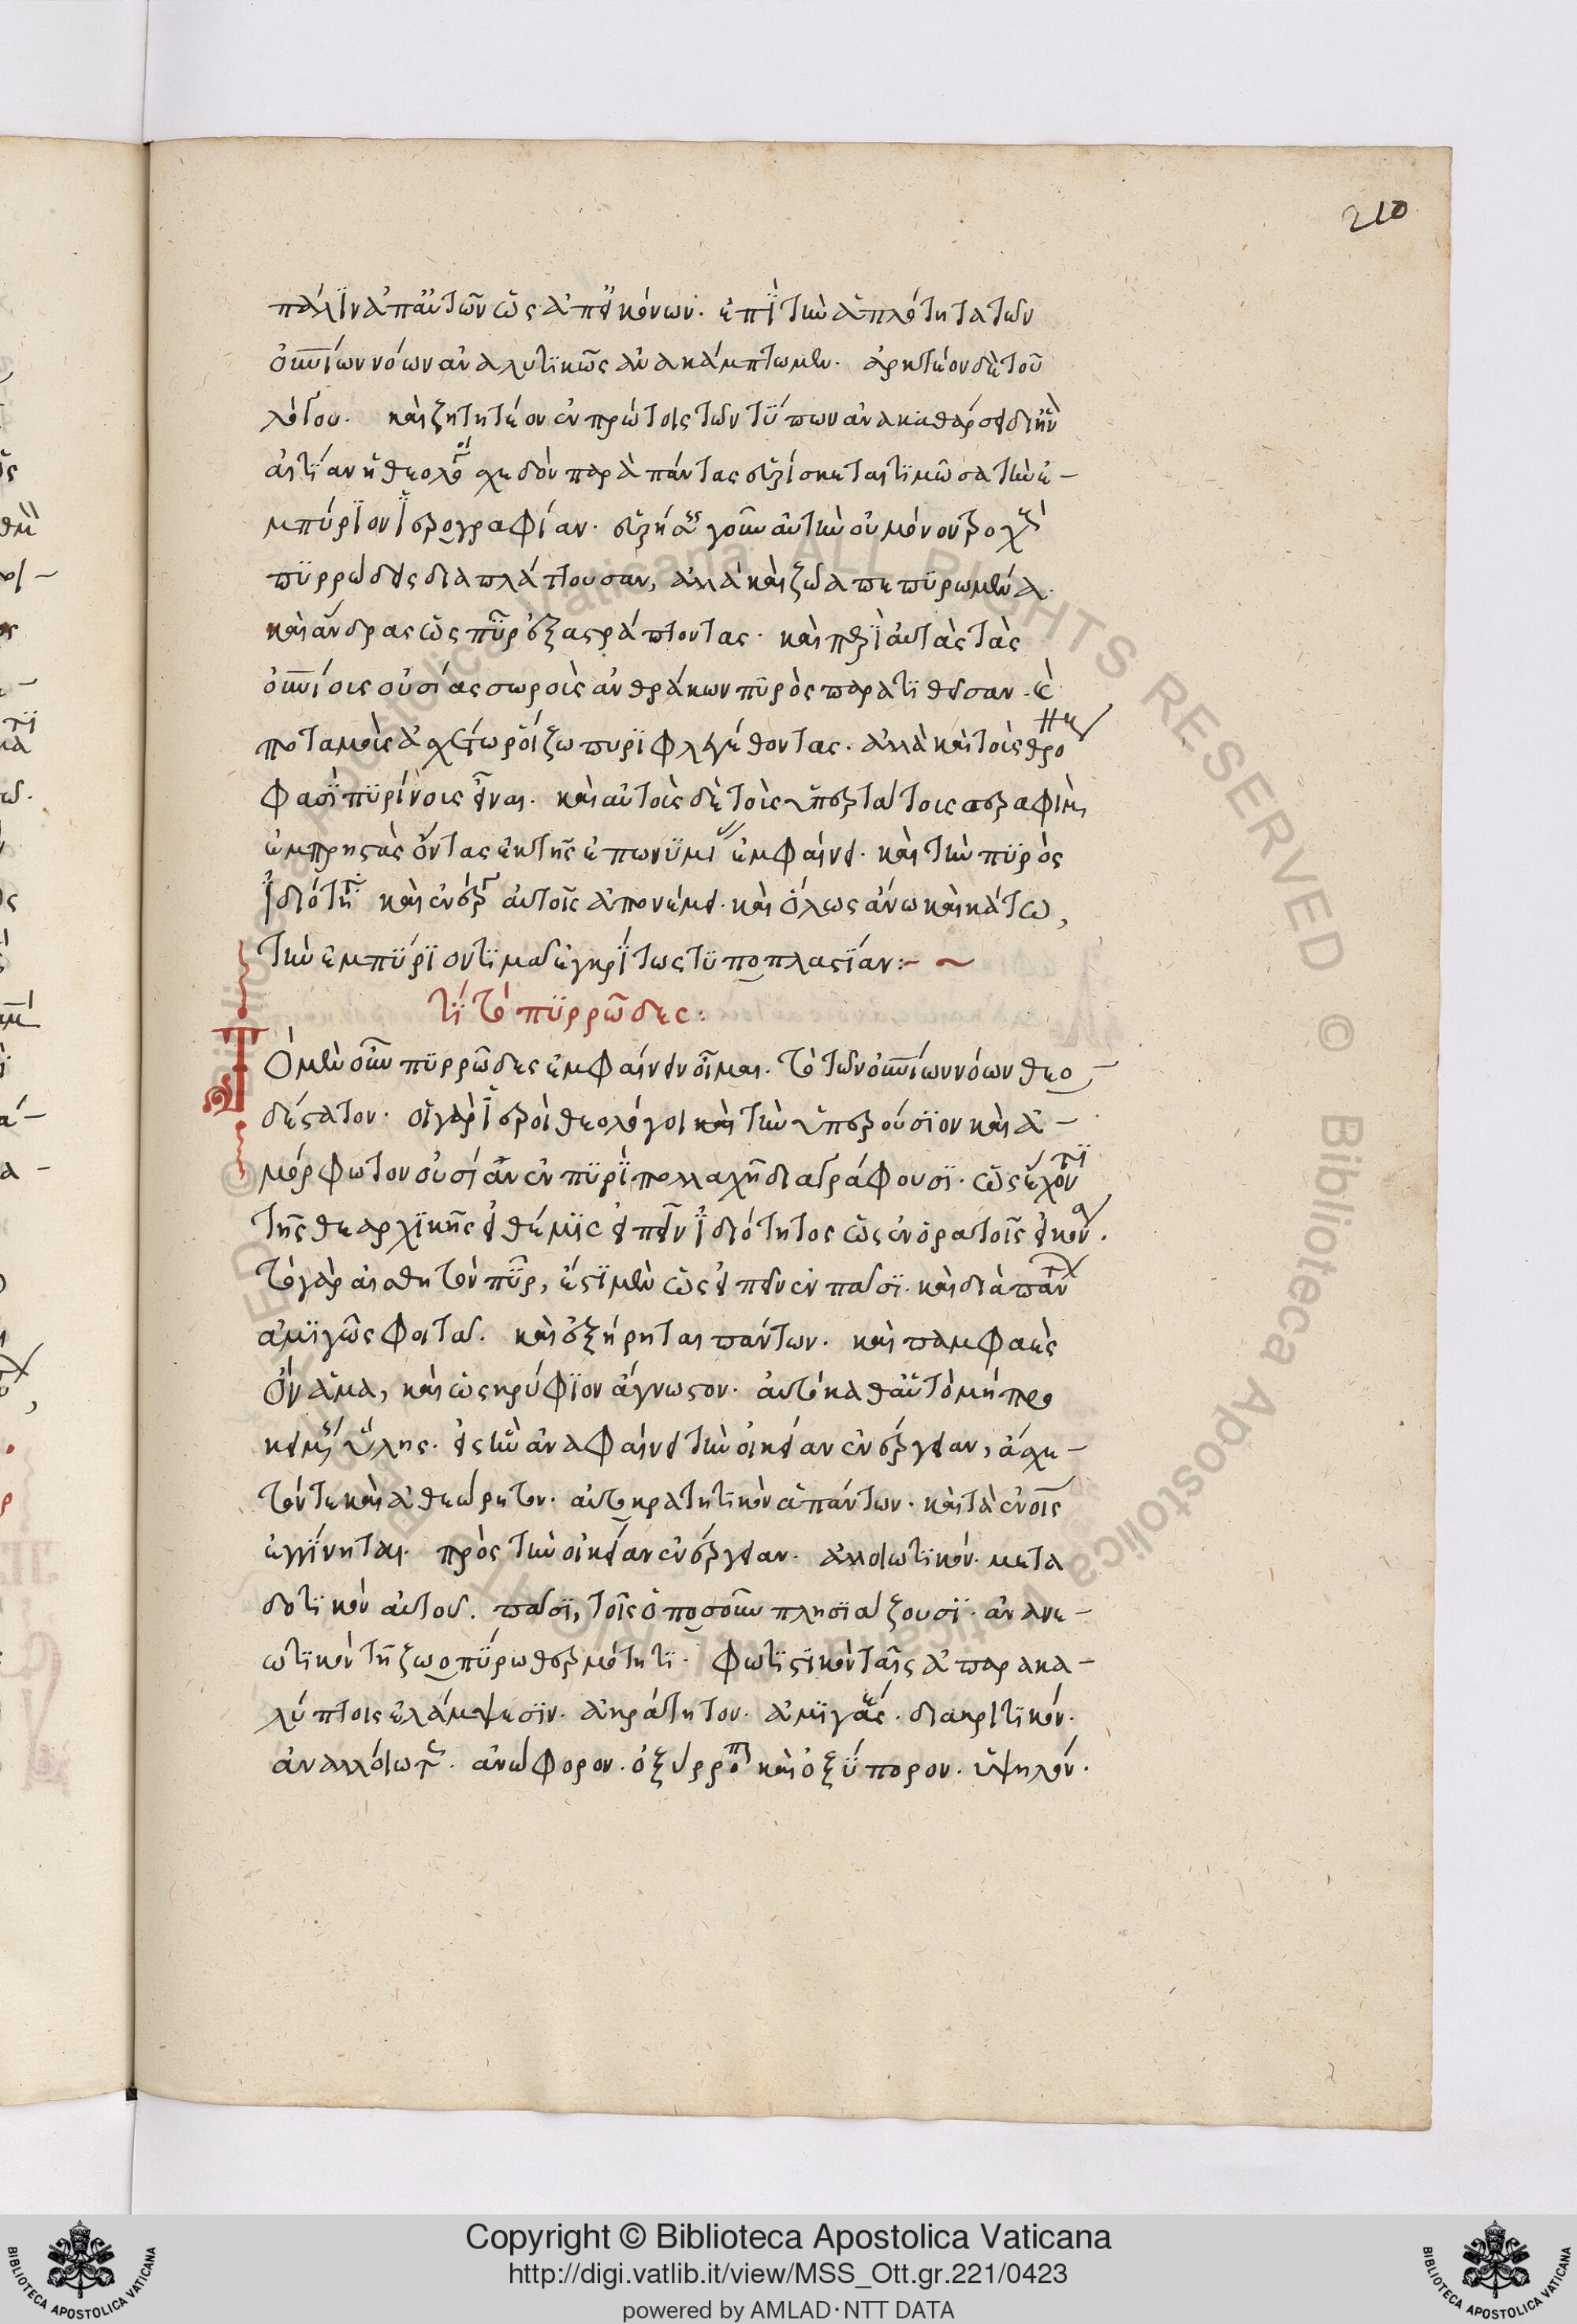 210
πάλιν ἀπ' αὐτῶν ὡς ἀπ' εἰκόνων. ἐπὶ τὴν ἁπλότητα τῶν
οὐνίων νόων ἀναλυτικῶς ἀνακάμπτωμεν. ἀρκτέον δὲ τοῦ
λόγου. καὶ ζητητέον ἐν πρώτοις τῶν τύπων ἀνακαθάρσει δι' ἣν
αἰτίαν ἡ θεολο σχεδὸν παρὰ πάντας εὑρίσκεται τιμῶσα τὴν ἐ-
μπύριον ἱερογραφίαν. εὑρήσεις γοῦν αὐτὴν οὐ μόνον τροχοὺς
πυρρώδεις διαπλάττουσαν, ἀλλὰ καὶ ζῶα πεπυρωμένα.
καὶ ἄνδρας ὡς πῦρ ἐξαστράπτοντας. καὶ περὶ αὐτὰς τὰς
οὐνίοις οὐσίας σωροὺς ἀνθράκων πυρὸς παρατιθεῖσαν. καὶ
ποταμοὺς ἀσχέτω ροίζω πυριφλεγέθοντας. ἀλλὰ καὶ τοὺς θρόνους
φασὶ πυρίνοις εἶναι. καὶ αὐτοὺς δὲ τοὺς ὑπερτάτοις σεραφὶμ
ἐμπρηστὰς ὄντας ἐκ τῆς ἐπωνυμίας ἐμφαίνει. καὶ τὴν πυρὸς
ἰδιότητα καὶ ἐνέργειαν αὐτοῖς ἀπονέμει. καὶ ὅλως ἄνω καὶ κάτω,
τὴν ἐμπύριον τιμᾶ ἐγκρίτως τυποπλαστίαν:- ~
τί τὸ πυρρῶδες:
Τὸ μὲν οὖν πυρρῶδες ἐμφαίνειν οἶμαι. τὸ τῶν οὐνίων νόων θεο-
δέστατον. οἱ γὰρ ἱεροὶ θεολόγοι καὶ τὴν ὑπερούσιον καὶ ἀ-
μόρφωτον οὐσίαν ἐν πυρὶ πολλαχῆ διαγράφουσι. ὡς ἔχοντι
τῆς θεαρχικῆς εἰ θέμις εἰπεῖν ἰδιότητος ὡς ἐν ὁρατοῖς εἰκόνα.
τὸ γὰρ αἰσθητὸν πῦρ, ἔστι μὲν ὡς εἰπεῖν ἐν πᾶσι. καὶ διὰ πάντων
ἀμιγῶς φοιτᾶ. καὶ ἐξήρηται πάντων. καὶ παμφαὲς
ὂν ἅμα, καὶ ὡς κρύφιον ἄγνωστον. αὐτὸ καθ' αὑτὸ μὴ προ
κειμένης ὕλης. εἰς ἣν ἀναφαίνει τὴν οἰκείαν ἐνέργειαν, ἄσχε-
τόν τε καὶ ἀθεώρητον. αὐτοκρατητικὸν ἁπάντων. καὶ τὰ ἐν οἷς
ἐγγίνηται. πρὸς τὴν οἰκείαν ἐνέργειαν. ἀλλοιωτικόν. μετα
δοτικὸν αὐτοῦ. πᾶσι, τοῖς ὁποσοῦν πλησιάζουσι. ἀνανε-
ωτικὸν τῆ ζωοπύρω θερμότητι. φωτιστικὸν ταῖς ἀπαρακα-
λύπτοις ἐλάμψεσιν. ἀκράτητον. ἀμιγές. διακριτικόν.
ἀναλλοίωτον. ἀνώφορον. ὀξύρροπον καὶ ὀξύπορον. ὑψηλόν.
Copyright © Biblioteca Apostolica Vaticana
http://digi.vatlib.it/view/MSS_Ott.gr.221/0423
powered by AMLAD·NTT DATA